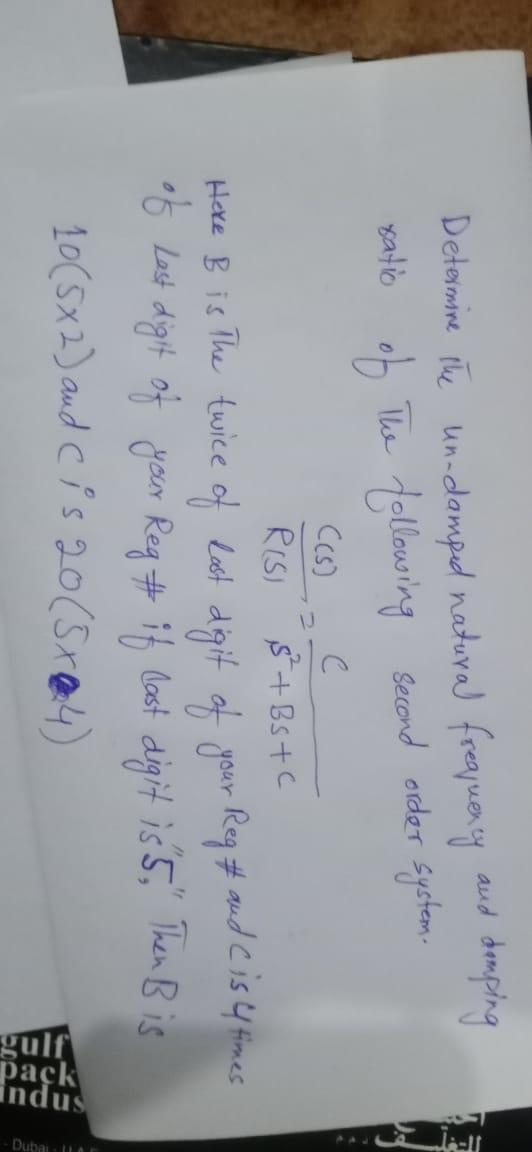 Determine The un-damped natural frequency and damping
ratio of The following second order system.
C(s) / R(s) = C / s² + Bs + C
Here B is The twice of last digit of your Reg # and C is 4 times
of Last digit of your Reg # if last digit is "5," Then B is
10(5x2) and C is 20(5x4)
gulf
pack
indus
- Dubai